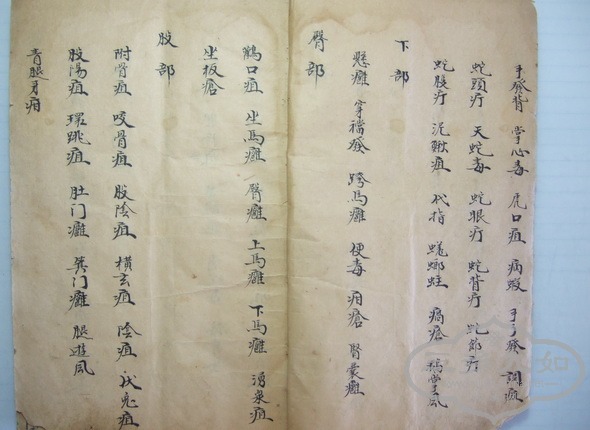 手發背 掌心毒 虎口疽 病蝦 手丫發 調疽
蛇頭疔 天蛇毒 蛇眼疔 蛇背疔 蛇節疔
蛇腹疔 泥鰍疽 代指 蟻螂蛀 瘑瘡 鵝掌风
下部
懸癰 穿襠發 跨馬癰 便毒 疳瘡 腎囊癰
臀部
鸛口疽 坐馬癰 臀癰 上馬癰 下馬癰 湧泉疽
坐板瘡
股部
附骨疽 咬骨疽 股陰疽 橫玄疽 陰疽 伏兔疽
股陽疽 環跳疽 肚门癰 箕门癰 腿遊风
青腿牙疳
如